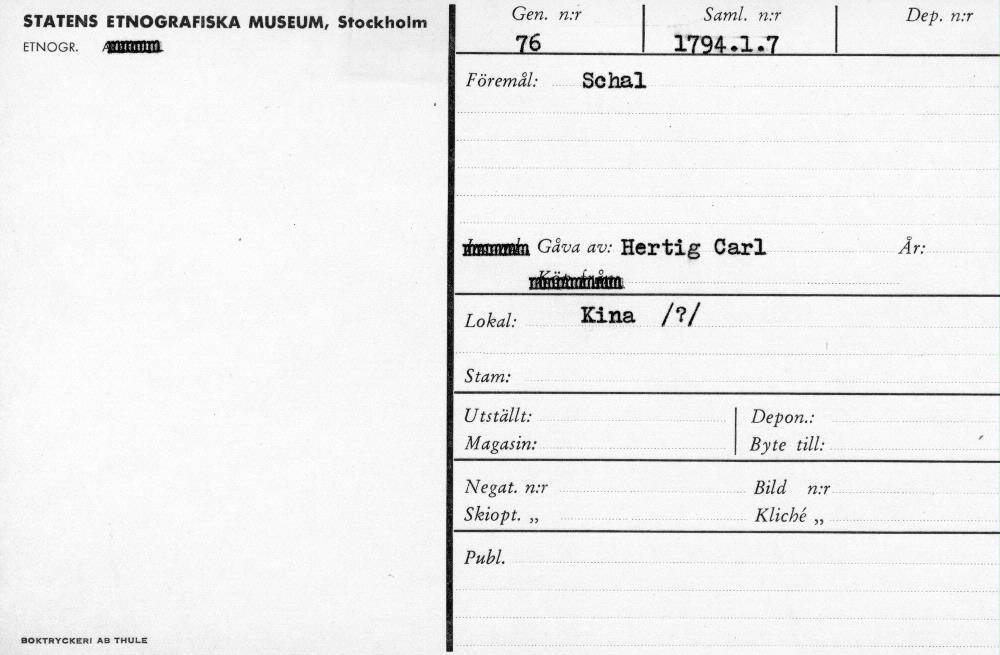 STATENS ETNOGRAFISKA MUSEUM, Stockholm
ETNOGR.
Gen. n:r Saml. n:r Dep. n:r
76 1794.1.7
Föremål: Schal
Gåva av: Hertig Carl År:
Köp från
Lokal: Kina /?/
Stam:
Utställt: Depon.:
Magasin: Byte till:
Negat. n:r Bild n:r
Skiopt. „ Kliché „
Publ.
BOKTRYCKERI AB THULE